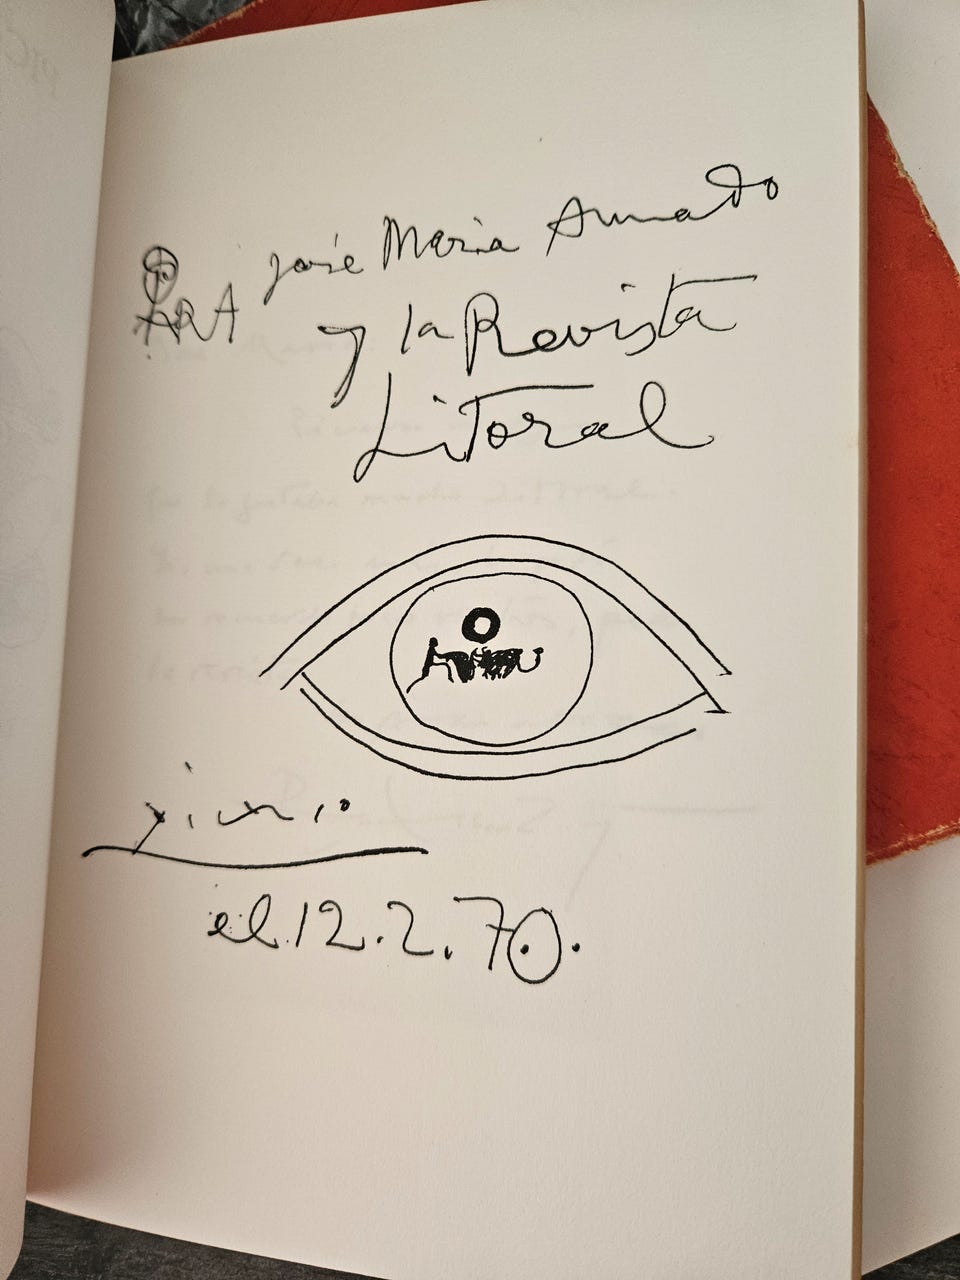 PARA José Maria Amado
y la Revista
Litoral
Picasso
el 12.2.70.